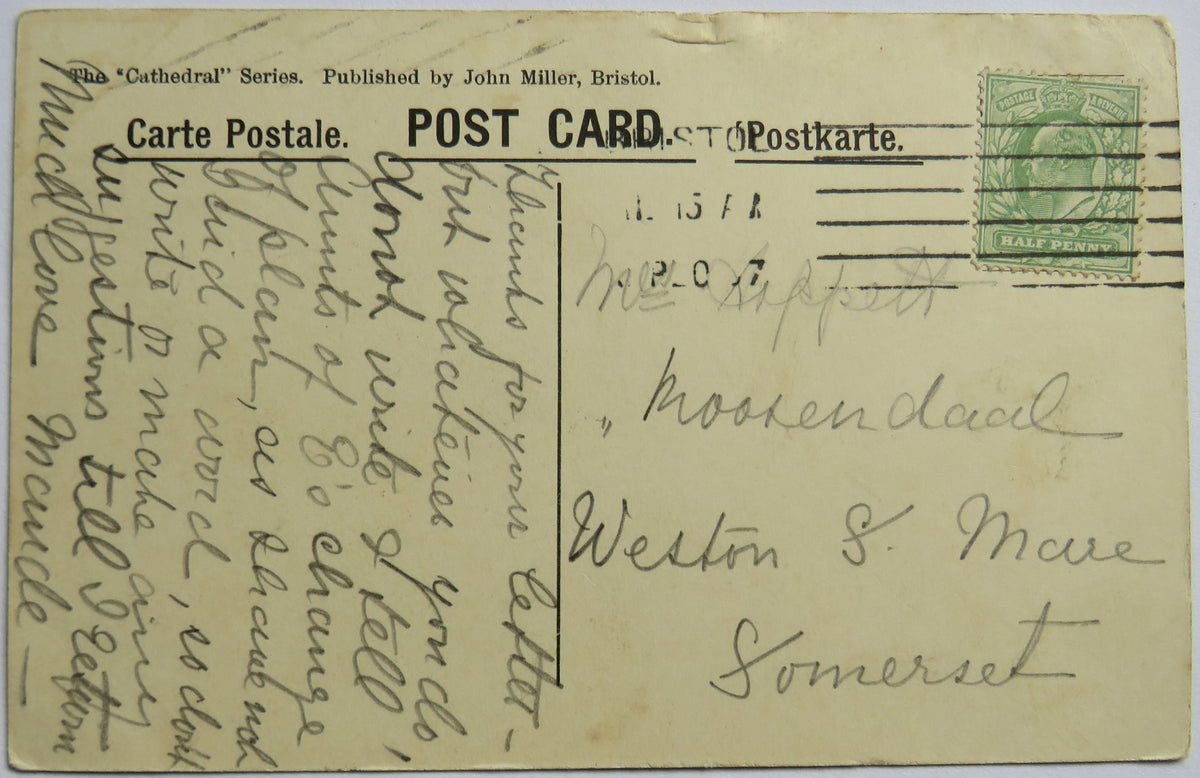 The "Cathedral" Series. Published by John Miller, Bristol.
Carte Postale. POST CARD. Postkarte.
BRISTOL
15 P
P 07
POSTAGE
HALF PENNY
Thanks for your letter –
but whatever you do,
dont write & tell
Aunts of E's change
of plan, as I have not
said a word, so dont
write or make any
suggestions till I return
Much love Maude –
Mrs
" Roosendaal
Weston S. Mare
Somerset